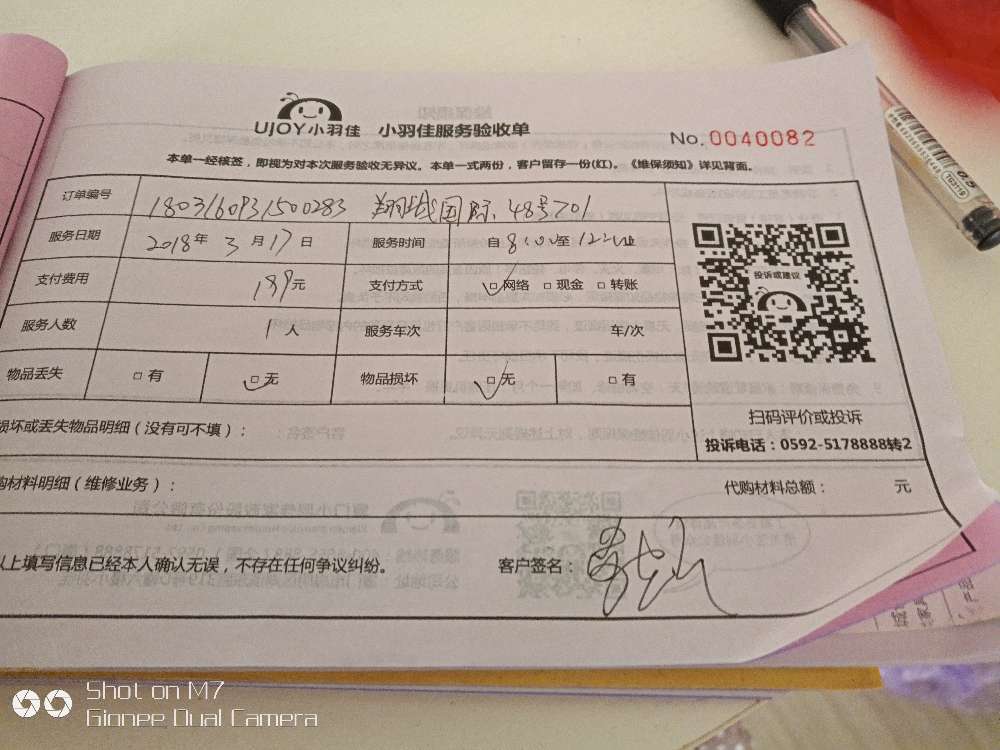 UJOY小羽佳 小羽佳服务验收单
No.0040082
本单一经核签，即视为对本次服务验收无异议。本单一式两份，客户留存一份(红)。《维保须知》详见背面。
订单编号 1803160931500283 翔城国际 48号701
服务日期 2018年3月17日 服务时间 自8:00至12:00止
支付费用 199元 支付方式 网络 □现金 □转账
服务人数 1人 服务车次 车/次
物品丢失 □有 □无 物品损坏 □无 □有
投诉或建议
扫码评价或投诉
投诉电话：0592-5178888转2
损坏或丢失物品明细（没有可不填）：
购材料明细（维修业务）： 代购材料总额： 元
以上填写信息已经本人确认无误，不存在任何争议纠纷。 客户签名：
0.5
Shot on M7
Gionee Dual Camera